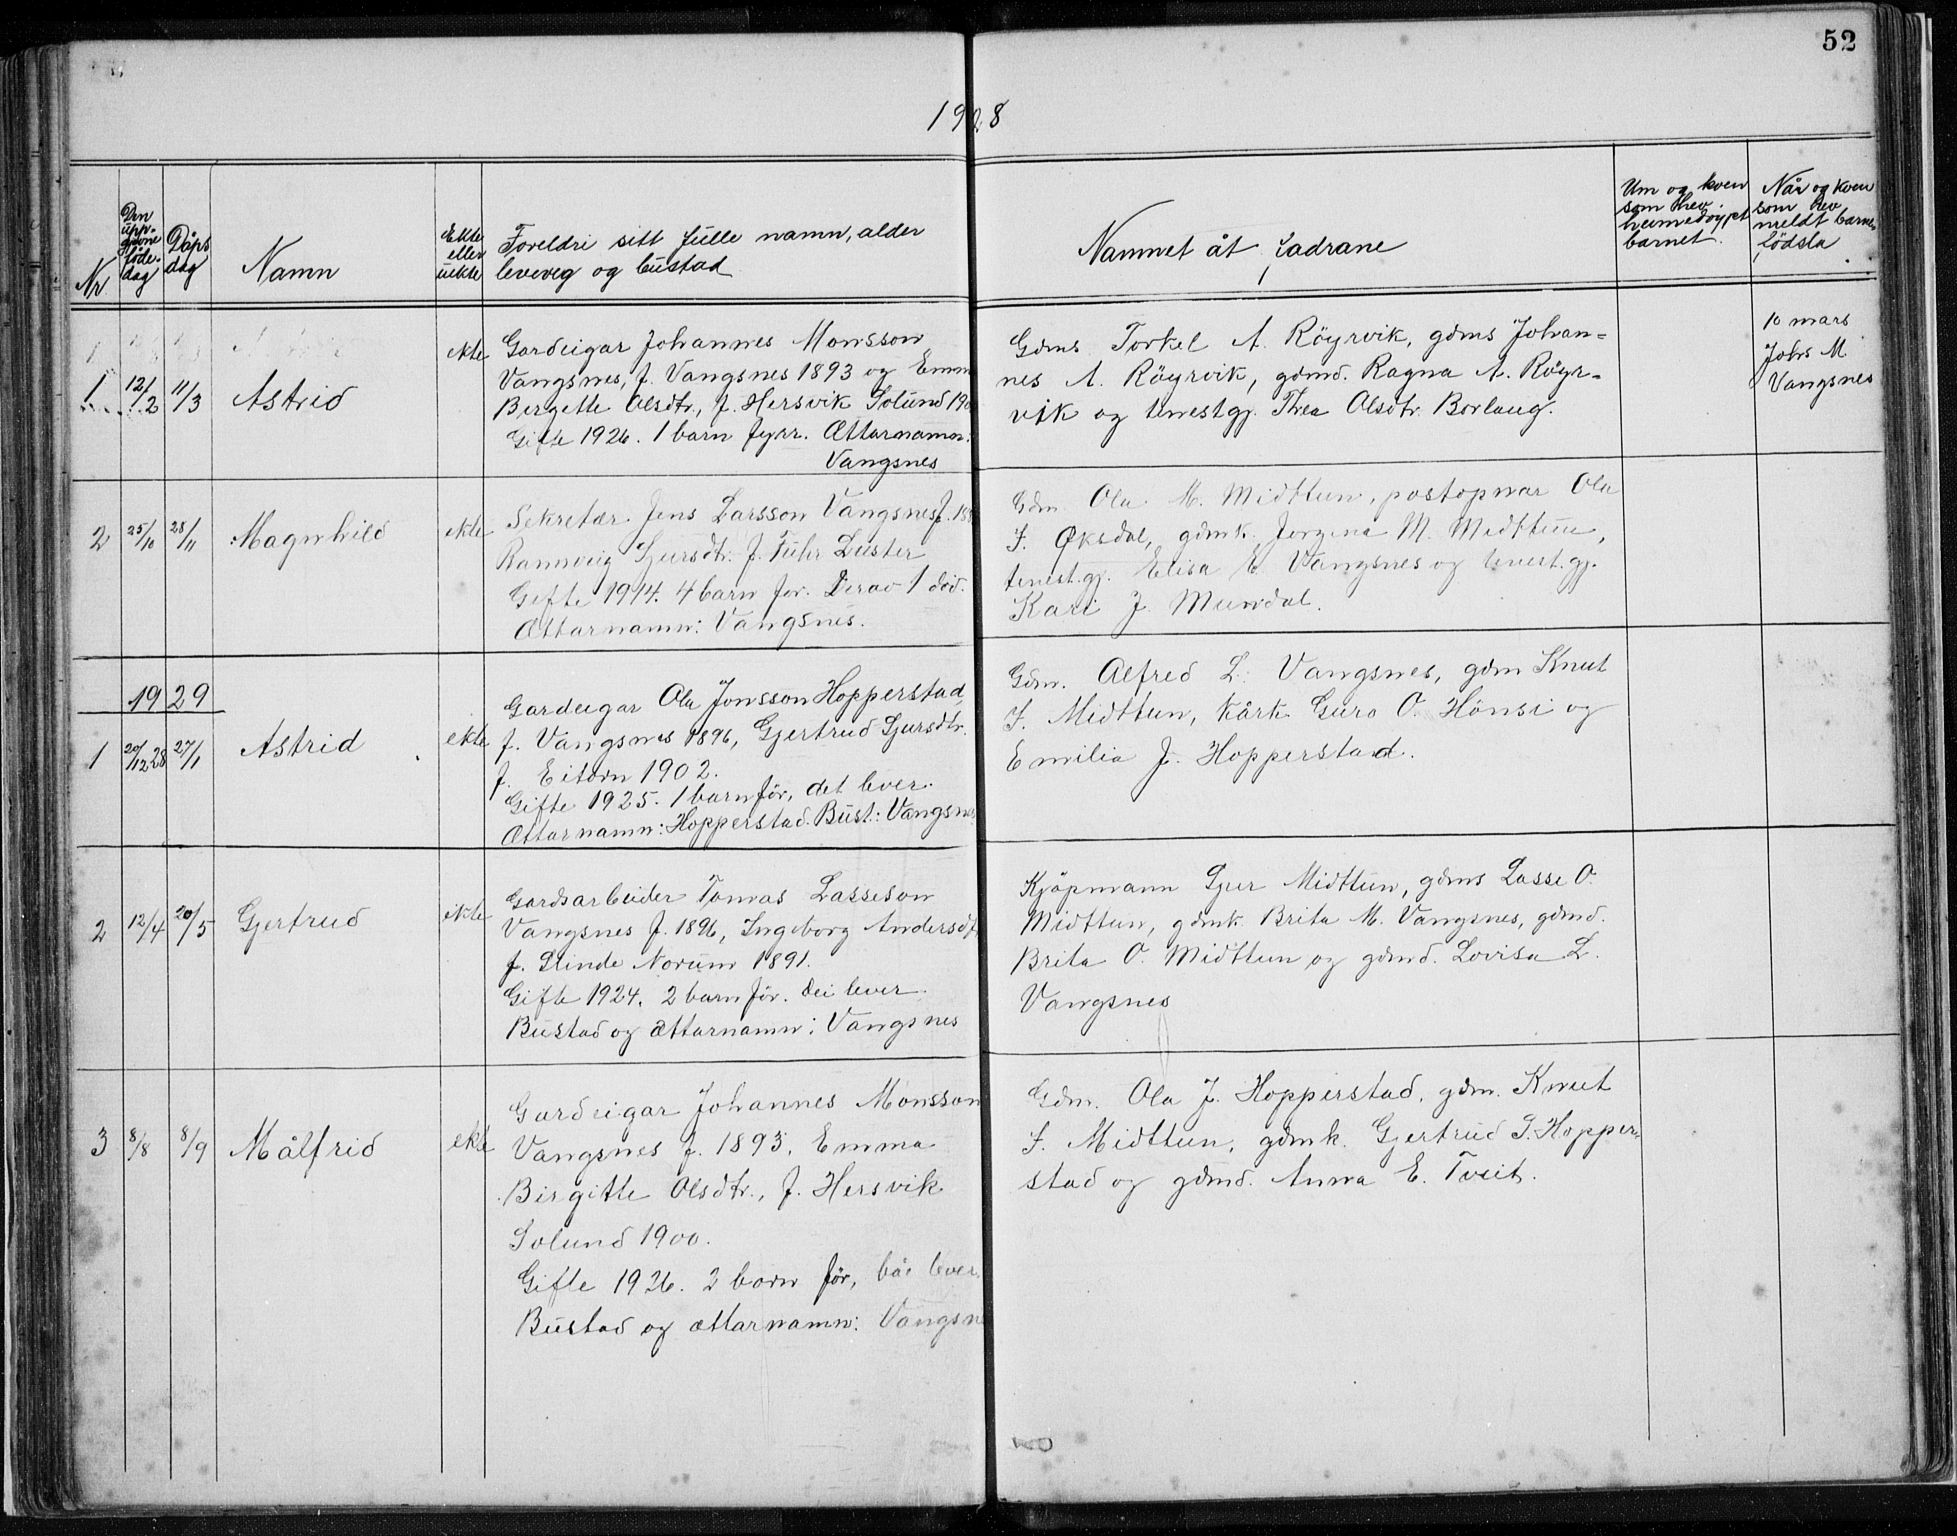 52
1928
Nr
Den uppgjevne fødedag
Dåps dag
Namn
Ekte eller uekte
Foreldri sitt fulle namn, alder
leveveg og bustad
Namnet åt fadrane
Um og kven
som hev
heimedøypt
barnet.
Når og kven
som hev
meldt barne-
födsla.
1 12/2 11/3 Astrid ekte
Gardeigar Johannes Monsson
Vangsnes, f. Vangsnes 1893 og Emm
Birgette Olsdtr., f. Hersvik Solund 190
Gifte 1926. 1 barn fyrr. Ættarnamn:
Vangsnes
Gdms Torkel A. Röyrvik, gdms Johan=
nes A. Röyrvik, gdmd. Ragna A. Röyr=
vik og tenestgj. Thea Olsdtr. Borlaug.
10 mars
Johs M.
Vangsnes
2 25/10 28/11 Magnhild ekte
Sekretær Jens Larsson Vangsnes f. 188
Rannveig Sjursdtr. f. Fuhr Luster
Gifte 1914. 4 barn för. Derav 1 död.
Ættarnamn: Vangsnes.
Gdm. Ola M. Midttun, postopnar Ola
J. Øksdal, gdmk. Jorgina M. Midttun,
tenest.gj. Elisa E. Vangsnes og tenest.gj.
Kari J. Mundal.
1929
1 20/12 28 27/1 Astrid ekte
Gardeigar Ola Jonsson Hopperstad,
f. Vangsnes 1896, Gjertrud Sjursdtr.
f. Eitorn 1902.
Gifte 1925. 1 barn för, det lever.
Ættarnamn: Hopperstad. Bust.: Vangsnes
Gdm. Alfred L. Vangsnes, gdm Knut
J. Midttun, kårk Guro O. Hönsi og
Emilia J. Hopperstad.
2 12/4 20/5 Gjertrud ekte
Gardsarbeider Tomas Lasseson
Vangsnes f. 1896, Ingeborg Andersdt
f. Slinde Norum 1891.
Gifte 1924. 2 barn för. Dei lever.
Bustad og ættarnamn: Vangsnes
Kjöpmann Sjur Midttun, gdms Lasse O.
Midttun, gdmk. Brita M. Vangsnes, gdmd.
Brita O. Midttun og gdmd. Lovisa L.
Vangsnes
3 8/8 8/9 Målfrid ekte
Gardeigar Johannes Monsson
Vangsnes f. 1893, Emma
Birgitte Olsdtr., f. Hersvik
Solund 1900.
Gifte 1926. 2 born för, båe lever.
Bustad og ættarnamn: Vangsn
Gdm. Ola J. Hopperstad, gdm. Knut
J. Midttun, gdmk. Gjertrud S. Hopper=
stad og gdmd. Anna E. Tveit.